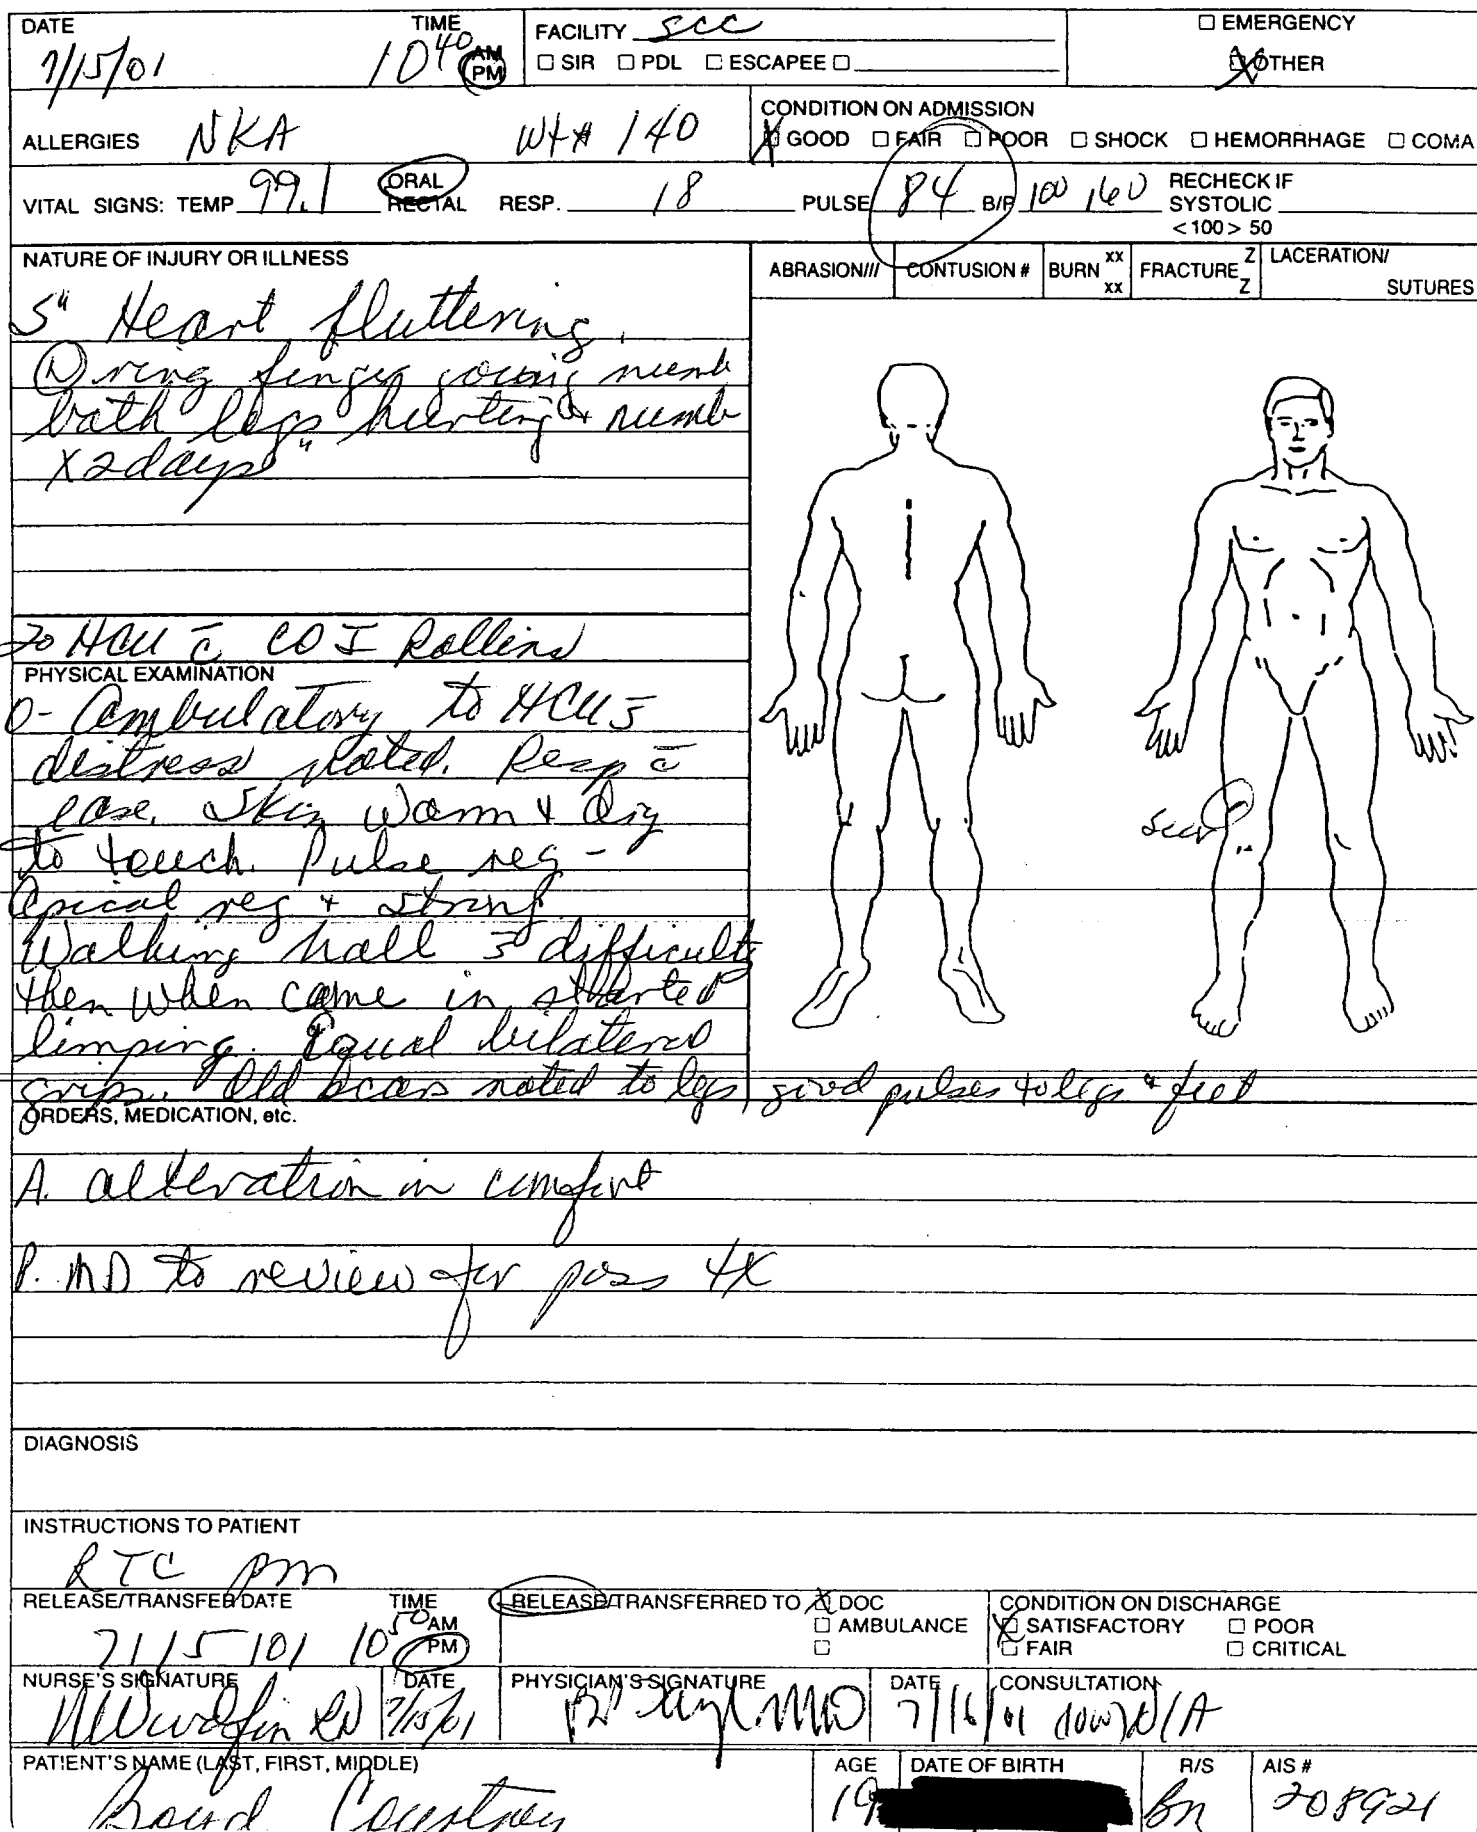 DATE TIME FACILITY SCC ☐ EMERGENCY
7/15/01 10 40 AM PM ☐ SIR ☐ PDL ☐ ESCAPEE ☐ ☒ OTHER
ALLERGIES NKA Wt# 140 CONDITION ON ADMISSION
☒ GOOD ☐ FAIR ☐ POOR ☐ SHOCK ☐ HEMORRHAGE ☐ COMA
VITAL SIGNS: TEMP 99.1 ORAL RECTAL RESP. 18 PULSE 84 B/P 100 / 60 RECHECK IF SYSTOLIC <100> 50
NATURE OF INJURY OR ILLNESS
ABRASION/// CONTUSION # BURN xx xx FRACTURE Z Z LACERATION/ SUTURES
S" Heart fluttering.
ring finger going numb
both legs hurting & numb
x2days"
To HCU c̄ COI Rollins
PHYSICAL EXAMINATION
O- Ambulatory to HCU s̄
distress noted. Resp c̄
ease. Skin warm & dry
to touch. Pulse reg -
apical reg & strong
Walking hall s̄ difficulty
then when came in started
limping. Equal bilateral
grips. Old scars noted to legs good pulses to legs & feet
scar
ORDERS, MEDICATION, etc.
A. alteration in comfort
P. MD to review for poss tx
DIAGNOSIS
INSTRUCTIONS TO PATIENT
RTC prn
RELEASE/TRANSFER DATE TIME RELEASE/TRANSFERRED TO ☒ DOC CONDITION ON DISCHARGE
7/15/01 10 50 AM PM ☐ AMBULANCE ☒ SATISFACTORY ☐ POOR
☐ ☐ FAIR ☐ CRITICAL
NURSE'S SIGNATURE DATE PHYSICIAN'S SIGNATURE DATE CONSULTATION
RN 7/15/01 MD 7/16/01 N/A
PATIENT'S NAME (LAST, FIRST, MIDDLE) AGE DATE OF BIRTH R/S AIS #
Boyd Courtney 19 Bm 208921